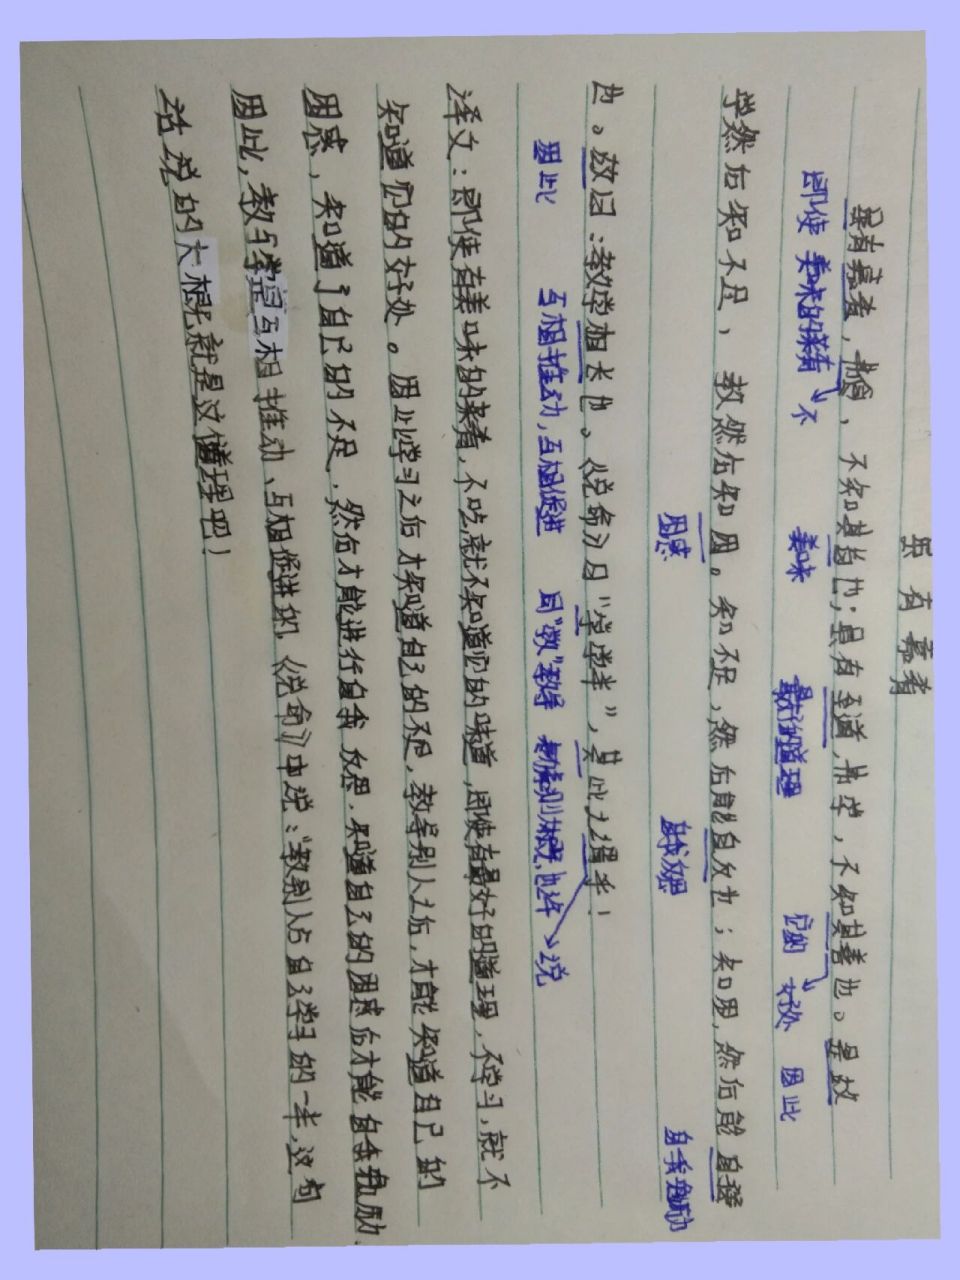 虽有嘉肴
虽有嘉肴，弗食，不知其旨也；虽有至道，弗学，不知其善也。是故
即使 美味的菜肴 不 美味 最好的道理 它的 好处 因此
学然后知不足，教然后知困。知不足，然后能自反也；知困，然后能自强
困惑 自我反思 自我勉励
也。故曰：教学相长也。《兑命》曰“学学半”，其此之谓乎！
因此 互相推动，互相促进 同“教”教导 也许 说
译文：即使有美味的菜肴，不吃，就不知道它的味道，即使有最好的道理，不学习，就不
知道它的好处。因此学习之后才知道自己的不足，教导别人之后，才能知道自己的
困惑，知道了自己的不足，然后才能进行自我反思，知道自己的困惑后才能自我勉励。
因此，教与学是互相推动、互相促进的，《兑命》中说：“教别人占自己学习的一半，这句
话说的大概就是这个道理吧！